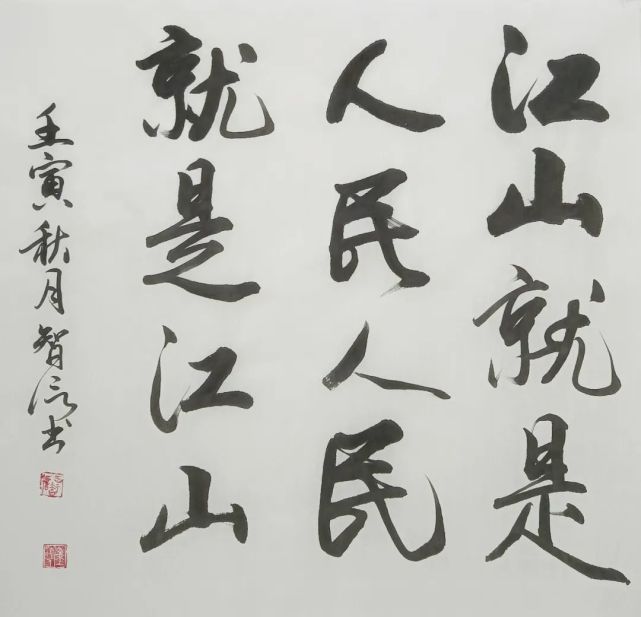 江山就是
人民人民
就是江山
壬寅秋月智信书